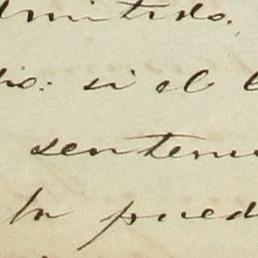 dmitido.
io: si el
senten
la pued